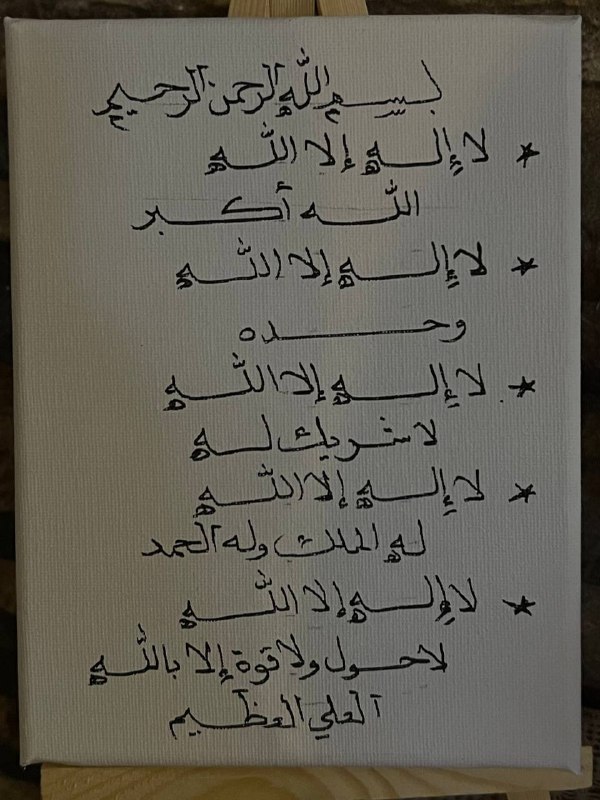 بسم الله الرحمن الرحيم
★ لا إله إلا الله
الله أكبر
★ لا إله إلا الله
وحده
★ لا إله إلا الله
لا شريك له
★ لا إله إلا الله
له الملك وله الحمد
★ لا إله إلا الله
لا حول ولا قوة إلا بالله
العلي العظيم